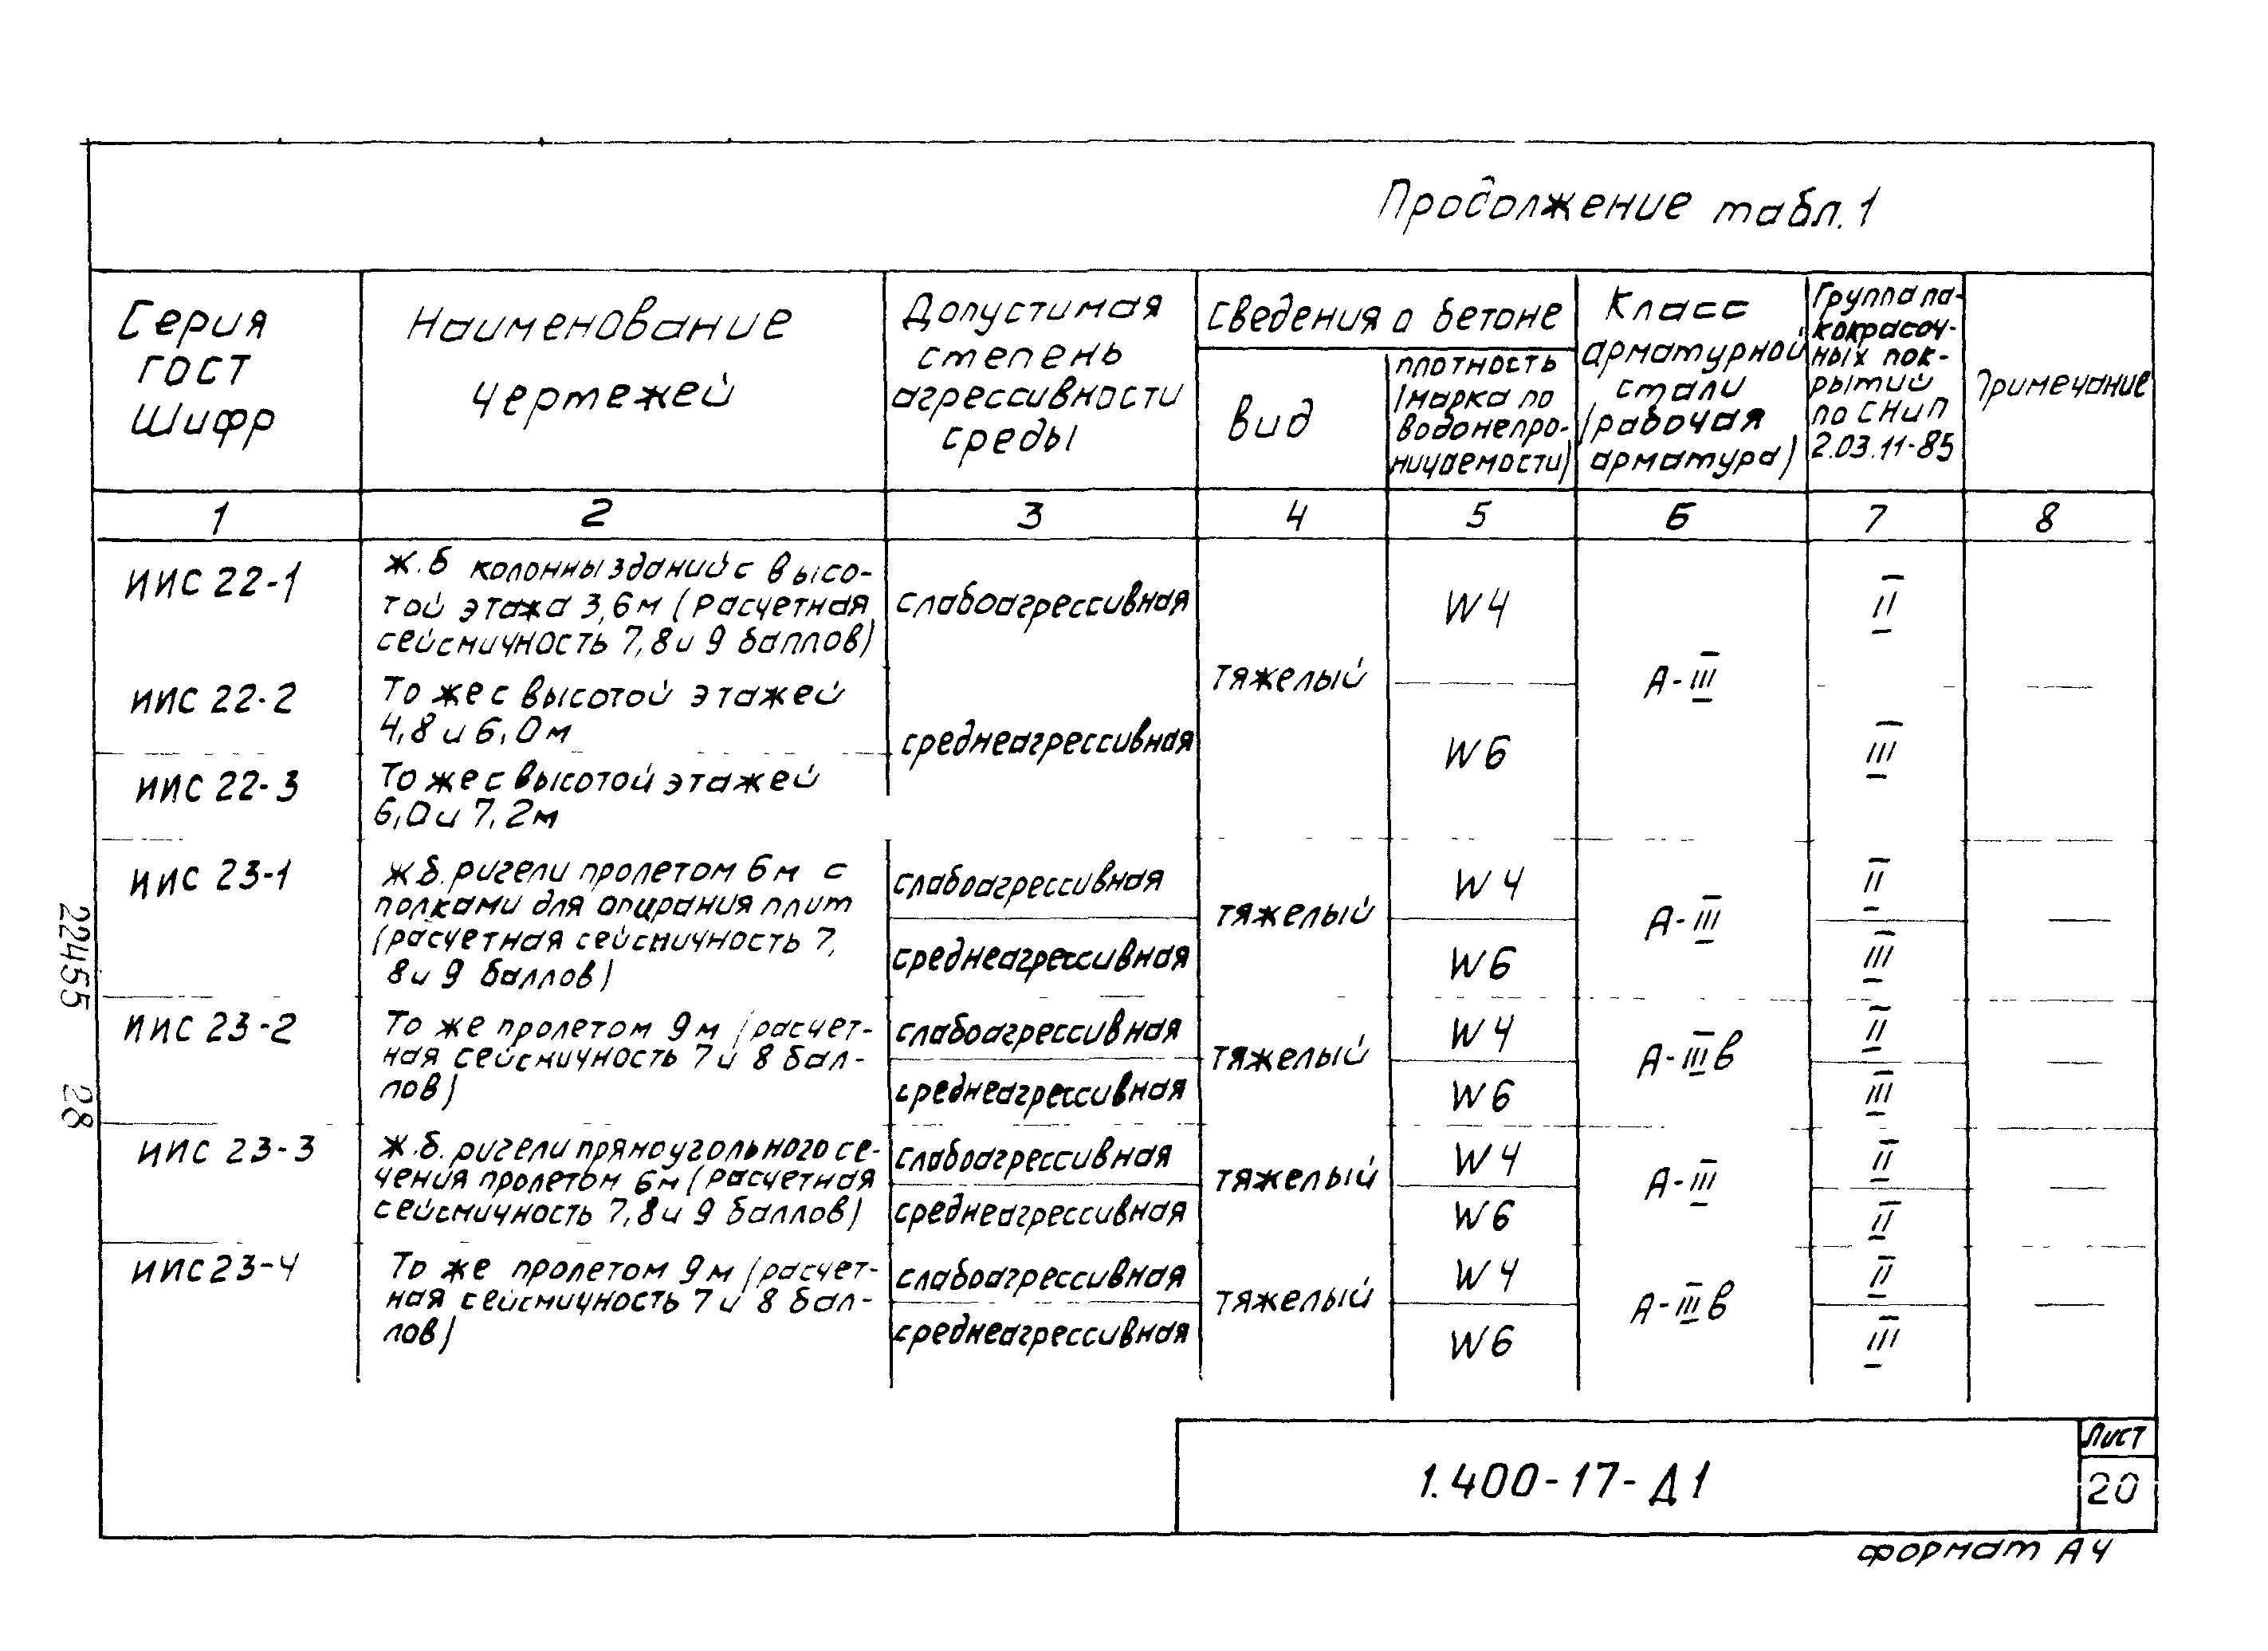 Продолжение табл. 1
Серия
ГОСТ
Шифр
Наименование
чертежей
Допустимая
степень
агрессивности
среды
Сведения о бетоне
Вид
плотность
(марка по
водонепро-
ницаемости)
Класс
арматурной
стали
(рабочая
арматура)
Группа ла-
кокрасоч-
ных пок-
рытий
по СНиП
2.03.11-85
Примечание
1 2 3 4 5 6 7 8
ИИС 22-1
Ж.б колонны зданий с высо-
той этажа 3,6м (расчетная
сейсмичность 7,8 и 9 баллов)
слабоагрессивная
W4
II
ИИС 22-2
То же с высотой этажей
4,8 и 6,0м
тяжелый
А-III
—
среднеагрессивная
W6
III
ИИС 22-3
То же с высотой этажей
6,0 и 7,2м
ИИС 23-1
Ж.б. ригели пролетом 6м с
полками для опирания плит
(расчетная сейсмичность 7,
8 и 9 баллов)
слабоагрессивная
среднеагрессивная
тяжелый
W4
W6
А-III
II
III
—
ИИС 23-2
То же пролетом 9м (расчет-
ная сейсмичность 7 и 8 бал-
лов)
слабоагрессивная
среднеагрессивная
тяжелый
W4
W6
А-IIIв
II
III
—
ИИС 23-3
Ж.б. ригели прямоугольного се-
чения пролетом 6м (расчетная
сейсмичность 7,8 и 9 баллов)
слабоагрессивная
среднеагрессивная
тяжелый
W4
W6
А-III
II
II
—
ИИС 23-4
То же пролетом 9м (расчет-
ная сейсмичность 7 и 8 бал-
лов)
слабоагрессивная
среднеагрессивная
тяжелый
W4
W6
А-IIIв
II
III
—
22455 28
1.400-17-Д1
Лист
20
формат А4